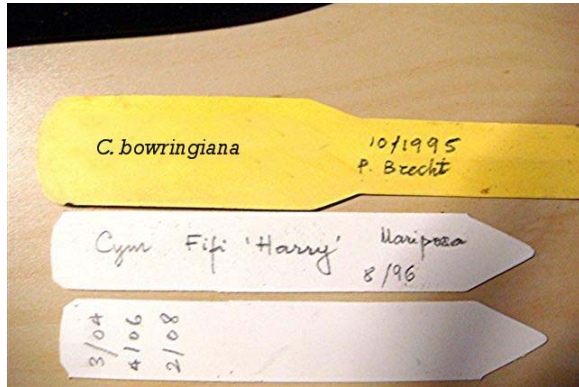 C. bowringiana
10/1995
P. Brecht
Cym Fifi 'Harry' Mariposa
8/96
3/04
4/06
2/08